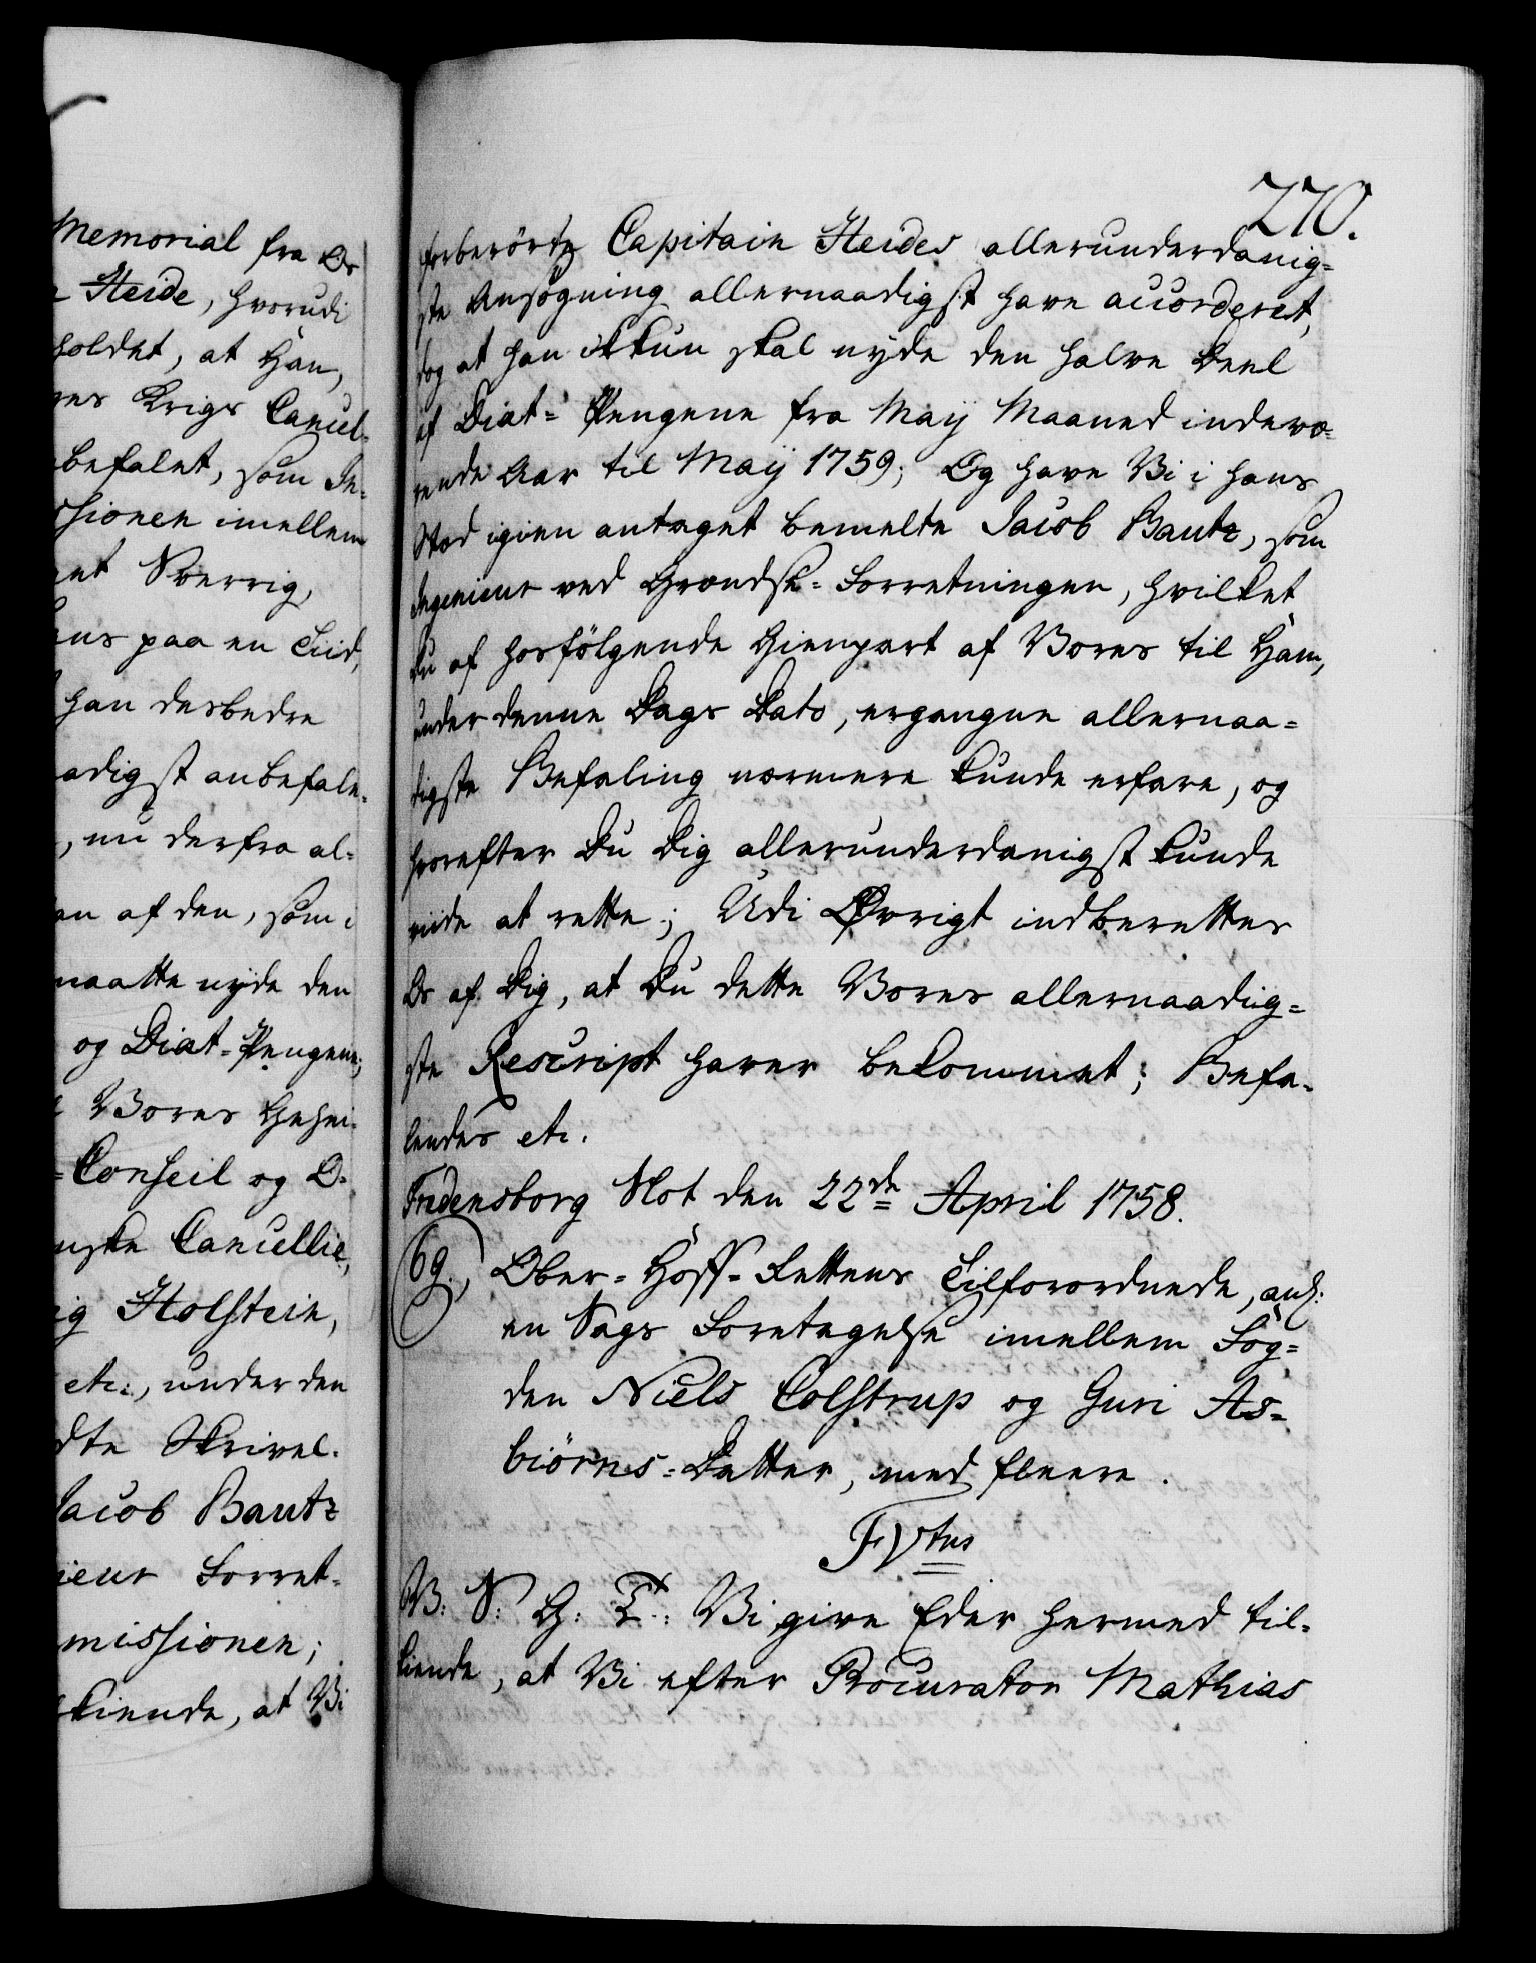 Memorial fra Os
Heide, hvorudi
holdet, at Han,
res Krigs Cancel-
befalet, som In-
ssionen imellem
Sverrig,
ens paa en Tiid,
han desbedre
adigst anbefale,
, nu derfra al-
en af den, som i
maatte nyde den
og Diæt-Pengene;
Vores Gehei-
-Conseil og O-
nske Cancellie,
ig Holstein,
etc:, under den
dte Skrivel-
Jacob Bautz
ieur Forret-
missionen;
kiende, at Vi
270.
forberörte Capitain Heides allerunderdanig-
ste Ansögning allernaadigst have accorderet,
dog at han ikkun skal nyde den halve Deel
af Diæt-Pengene fra Maij Maaned indevæ-
rende Aar til Maij 1759; Og have Vi i hans
Stæd igien antaget bemelte Jacob Bautz, som
Ingenieur ved Grændse-Forretningen, hvilket
Du af hosfölgende Gienpart af Vores til Ham,
under denne Dags Dato, ergangne allernaa-
digste Befaling nærmere kunde erfare, og
hvorefter Du Dig allerunderdanigst kunde
viide at rette; Udi Øvrigt indberettes
Os af Dig, at Du dette Vores allernaadig-
ste Rescript haver bekommet; Befa-
lendes etc.
Fredensborg Slot den 22de April 1758.
69., Ober-Hoff-Rettens Tilforordnede, anl:
en Sags Foretagelse imellem Fog-
den Niels Colstrup og Guri As-
biörns-Datter, med fleere.
FVtus
V: S: G: T: Vi give Eder hermed til-
kiende, at Vi efter Procurator Mathias